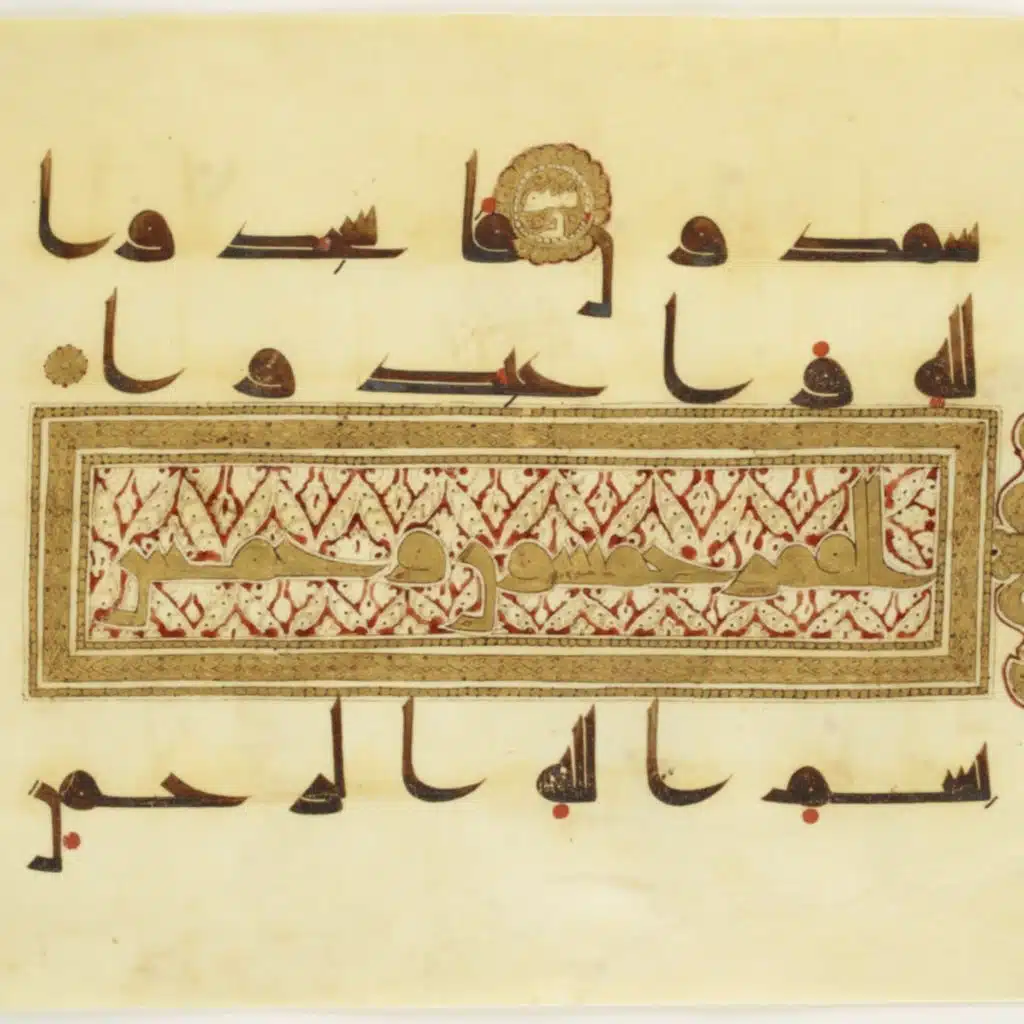 سمدون فاسجدوا
لله واعبدوا
القمر خمسون وخمس
بسم الله الرحمن